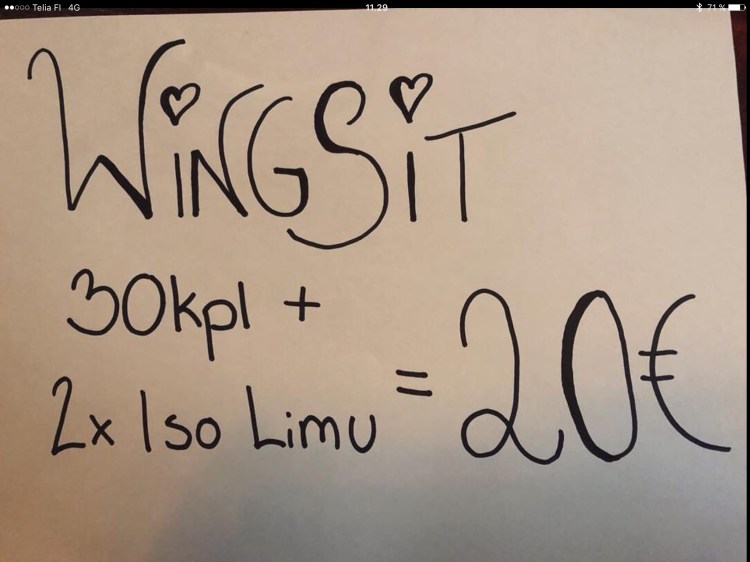 Telia FI 4G 11.29 71 %
WiNGSiT
30kpl +
2x Iso Limu = 20€